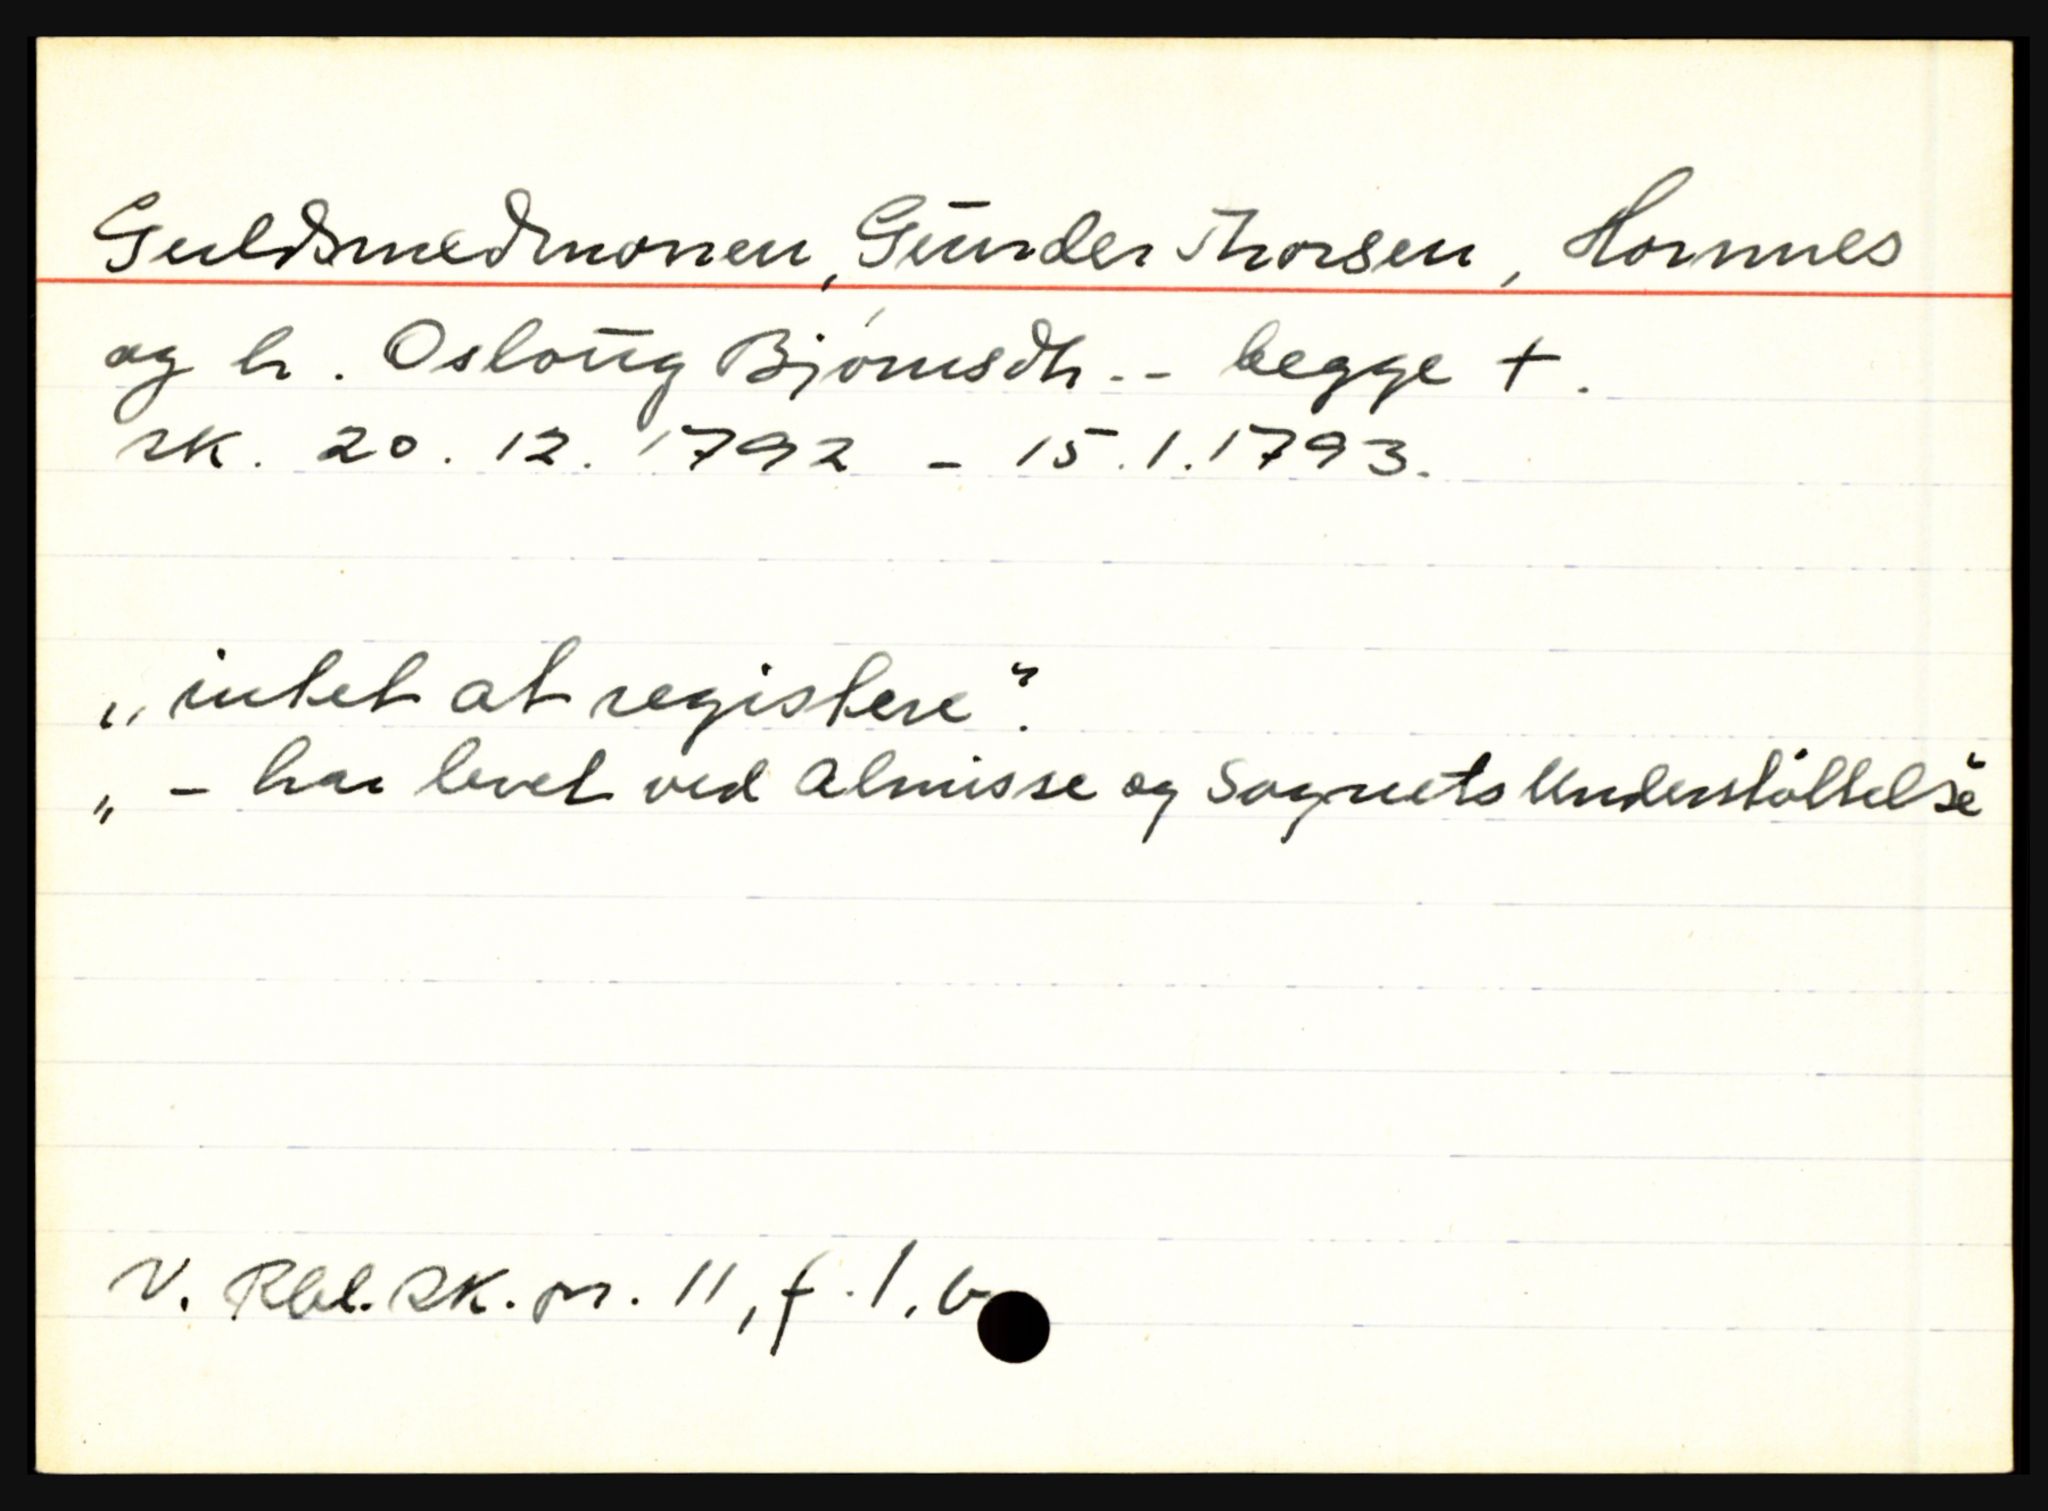 Guldsmedmonen, Gūnder Thorsen, Hornnes
og h. Osloūg Bjørnsdtr. - begge +.
sk. 20. 12. 1792 - 15.1.1793.
„intet at registere".
„ - har levet ved Almisse og Sognets Understøttelse"
V. Rbl. sk. nr. 11, f. 1.b